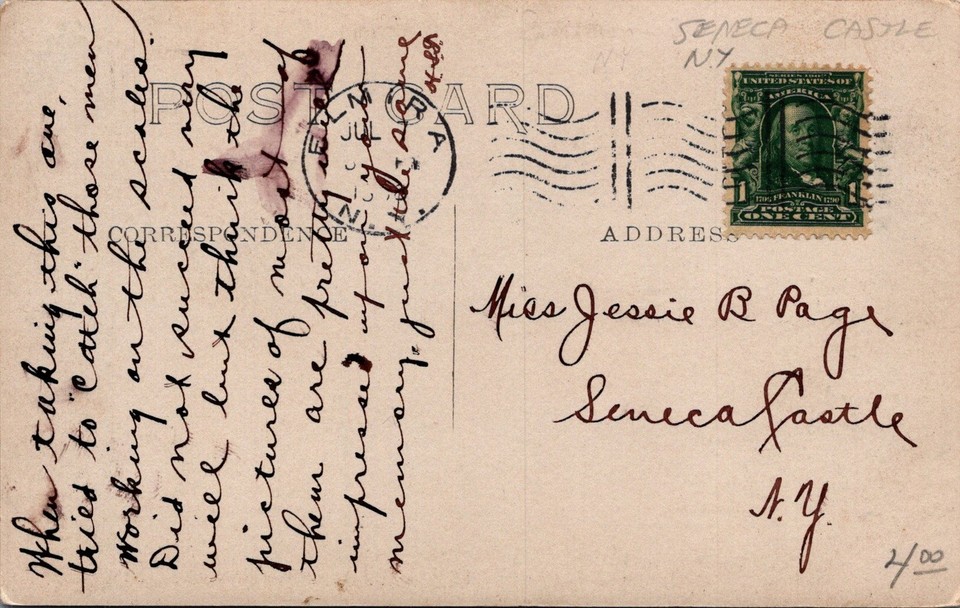 SENECA CASTLE
NY
NY
POST CARD
ELMIRA
JUL
N.Y.
SERIES 1902
UNITED STATES OF
AMERICA
1 1
1706 FRANKLIN 1790
POSTAGE
ONE CENT
CORRESPONDENCE
ADDRESS
When taking this one,
tried to "catch" those men
working on the scales.
Did not succeed very
well but think the
pictures of most of
them are pretty well
impressed upon your
memory just the same
Miss Jessie B Page
Seneca Castle
N.Y.
4.00